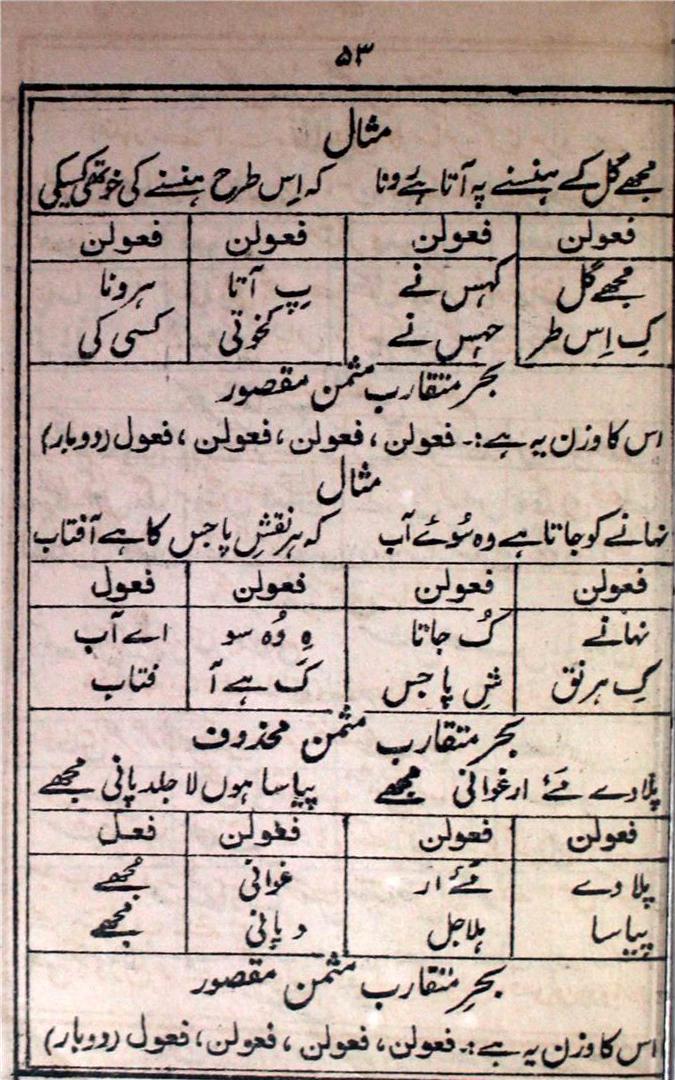 ۵۳
مثال
مجھے گل کے ہنسنے پہ آتا ہے رونا کہ اِس طرح ہنسنے کی خو تھی کسی کی
فعولن فعولن فعولن فعولن
مجھے گل کہس نے پِ آتا ہرونا
کِ اِس طر حہس نے کخوتی کسی کی
بحر متقارب مثمن مقصور
اس کا وزن یہ ہے :۔ فعولن ، فعولن ، فعولن ، فعول (دوبار)
مثال
نہانے کو جاتا ہے وہ سُوئے آب کہ ہر نقشِ پا جس کا ہے آفتاب
فعولن فعولن فعولن فعول
نہانے کُ جاتا ہِ وُہ سو اے آب
کِ ہر نق شِ پا جس کَ ہے آ فتاب
بحر متقارب مثمن محذوف
پلا دے مَۓ ارغوانی مجھے پیاسا ہوں لا جلد پانی مجھے
فعولن فعولن فعولن فعل
پلا دے مَۓ ار غوانی مجھے
پیاسا ہلا جل د پانی مجھے
بحرِ متقارب مثمن مقصور
اس کا وزن یہ ہے :۔ فعولن، فعولن ، فعولن، فعول (دوبار)